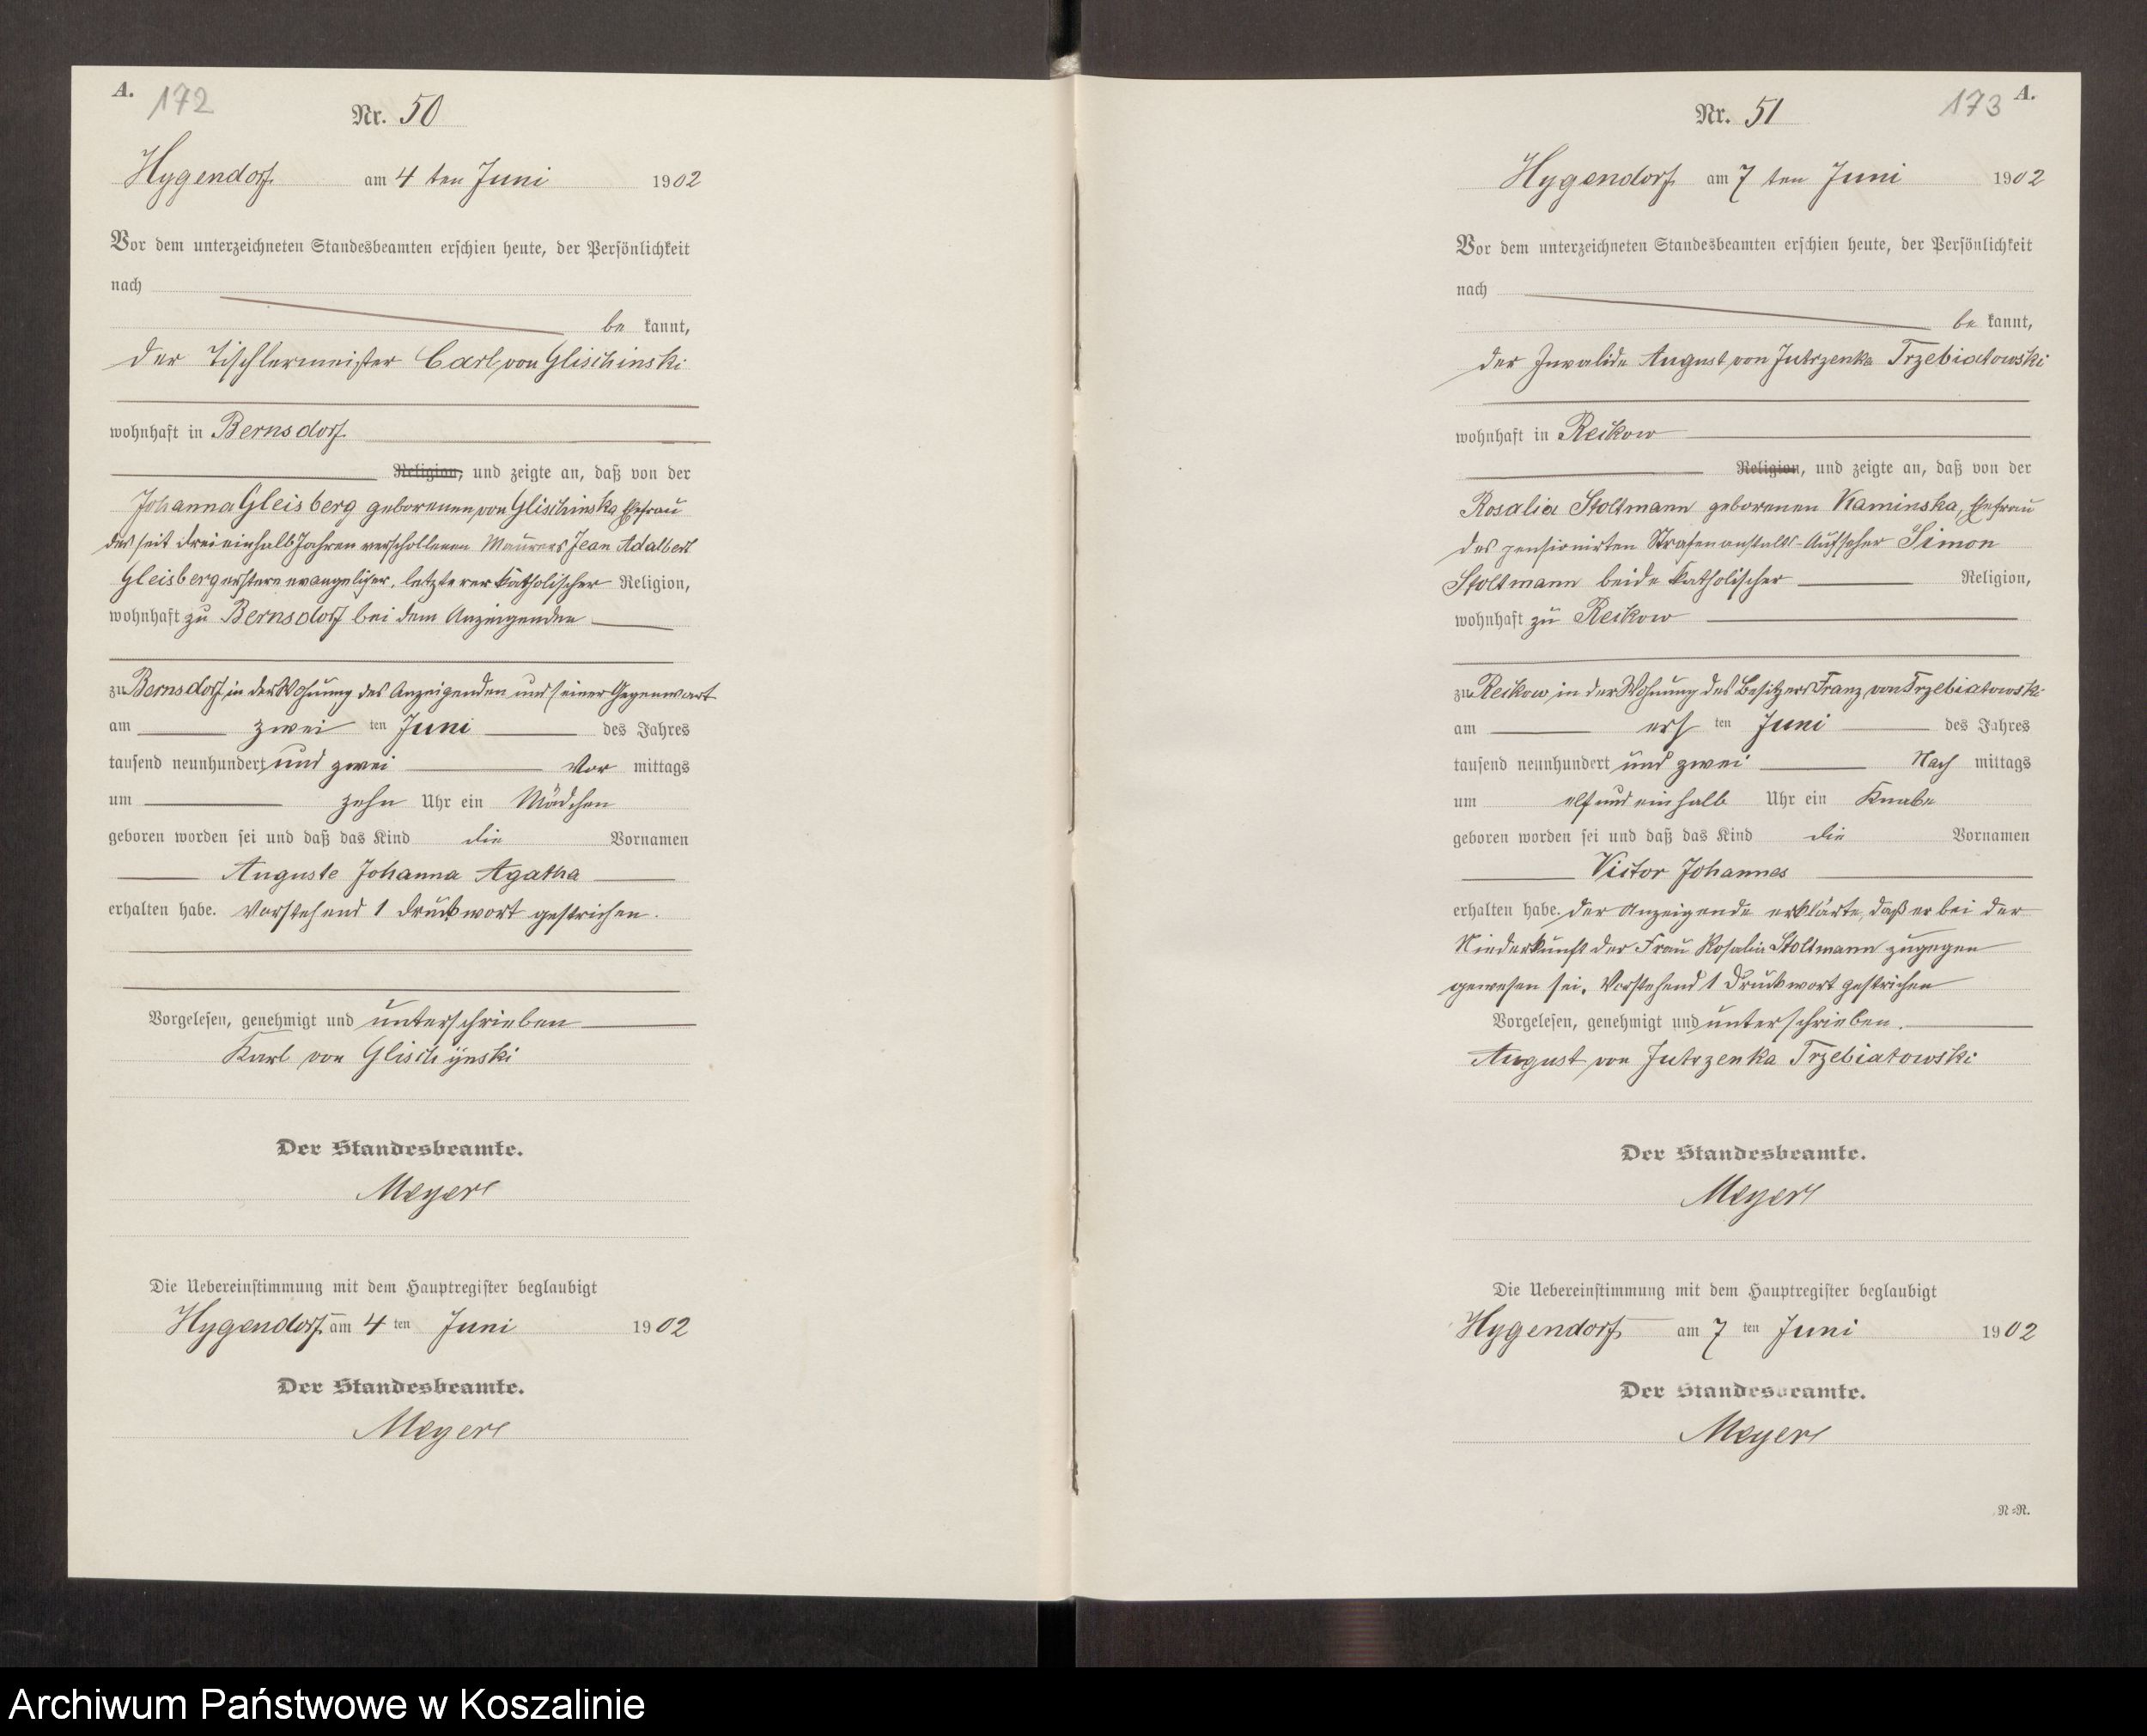 A.
172
Nr. 50
Hygendorf am 4 ten Juni 1902
Vor dem unterzeichneten Standesbeamten erschien heute, der Persönlichkeit
nach
be kannt,
der Tischlermeister Carl von Glischinski
wohnhaft in Bernsdorf
Religion, und zeigte an, daß von der
Johanna Gleisberg geborenen von Glischinska Ehefrau
des seit dreieinhalb Jahren verschollenen Maurers Jean Adalbert
Gleisberg erstere evangelischer, letzterer katholischer Religion,
wohnhaft zu Bernsdorf bei dem Anzeigenden
zu Bernsdorf in der Wohnung des Anzeigenden und seiner Gegenwart
am zwei ten Juni des Jahres
tausend neunhundert und zwei Vor mittags
um zehn Uhr ein Mädchen
geboren worden sei und daß das Kind die Vornamen
Auguste Johanna Agatha
erhalten habe. Vorstehend 1 Druckwort gestrichen.
Vorgelesen, genehmigt und unterschrieben
Karl von Glischÿnski
Der Standesbeamte.
Meyer
Die Uebereinstimmung mit dem Hauptregister beglaubigt
Hygendorf am 4 ten Juni 1902
Der Standesbeamte.
Meyer
173
A.
Nr. 51
Hygendorf am 7 ten Juni 1902
Vor dem unterzeichneten Standesbeamten erschien heute, der Persönlichkeit
nach
be kannt,
der Invalide August von Jutrzenka Trzebiatowski
wohnhaft in Reikow
Religion, und zeigte an, daß von der
Rosalia Stoltmann geborenen Kaminska, Ehefrau
des pensionirten Strafenanstalts-Aufseher Simon
Stoltmann beide katholischer Religion,
wohnhaft zu Reikow
zu Reikow in der Wohnung des Besitzers Franz von Trzebiatowski
am ers ten Juni des Jahres
tausend neunhundert und zwei Nach mittags
um elf und einhalb Uhr ein Knabe
geboren worden sei und daß das Kind die Vornamen
Victor Johannes
erhalten habe. Der Anzeigende erklärte, daß er bei der
Niederkunft der Frau Rosalia Stoltmann zugegen
gewesen sei. Vorstehend 1 Druckwort gestrichen
Vorgelesen, genehmigt und unterschrieben.
August von Jutrzenka Trzebiatowski
Der Standesbeamte.
Meyer
Die Uebereinstimmung mit dem Hauptregister beglaubigt
Hygendorf am 7 ten Juni 1902
Der Standesbeamte.
Meyer
N=N.
Archiwum Państwowe w Koszalinie